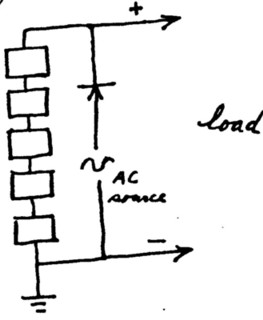 +
load
AC
source
−